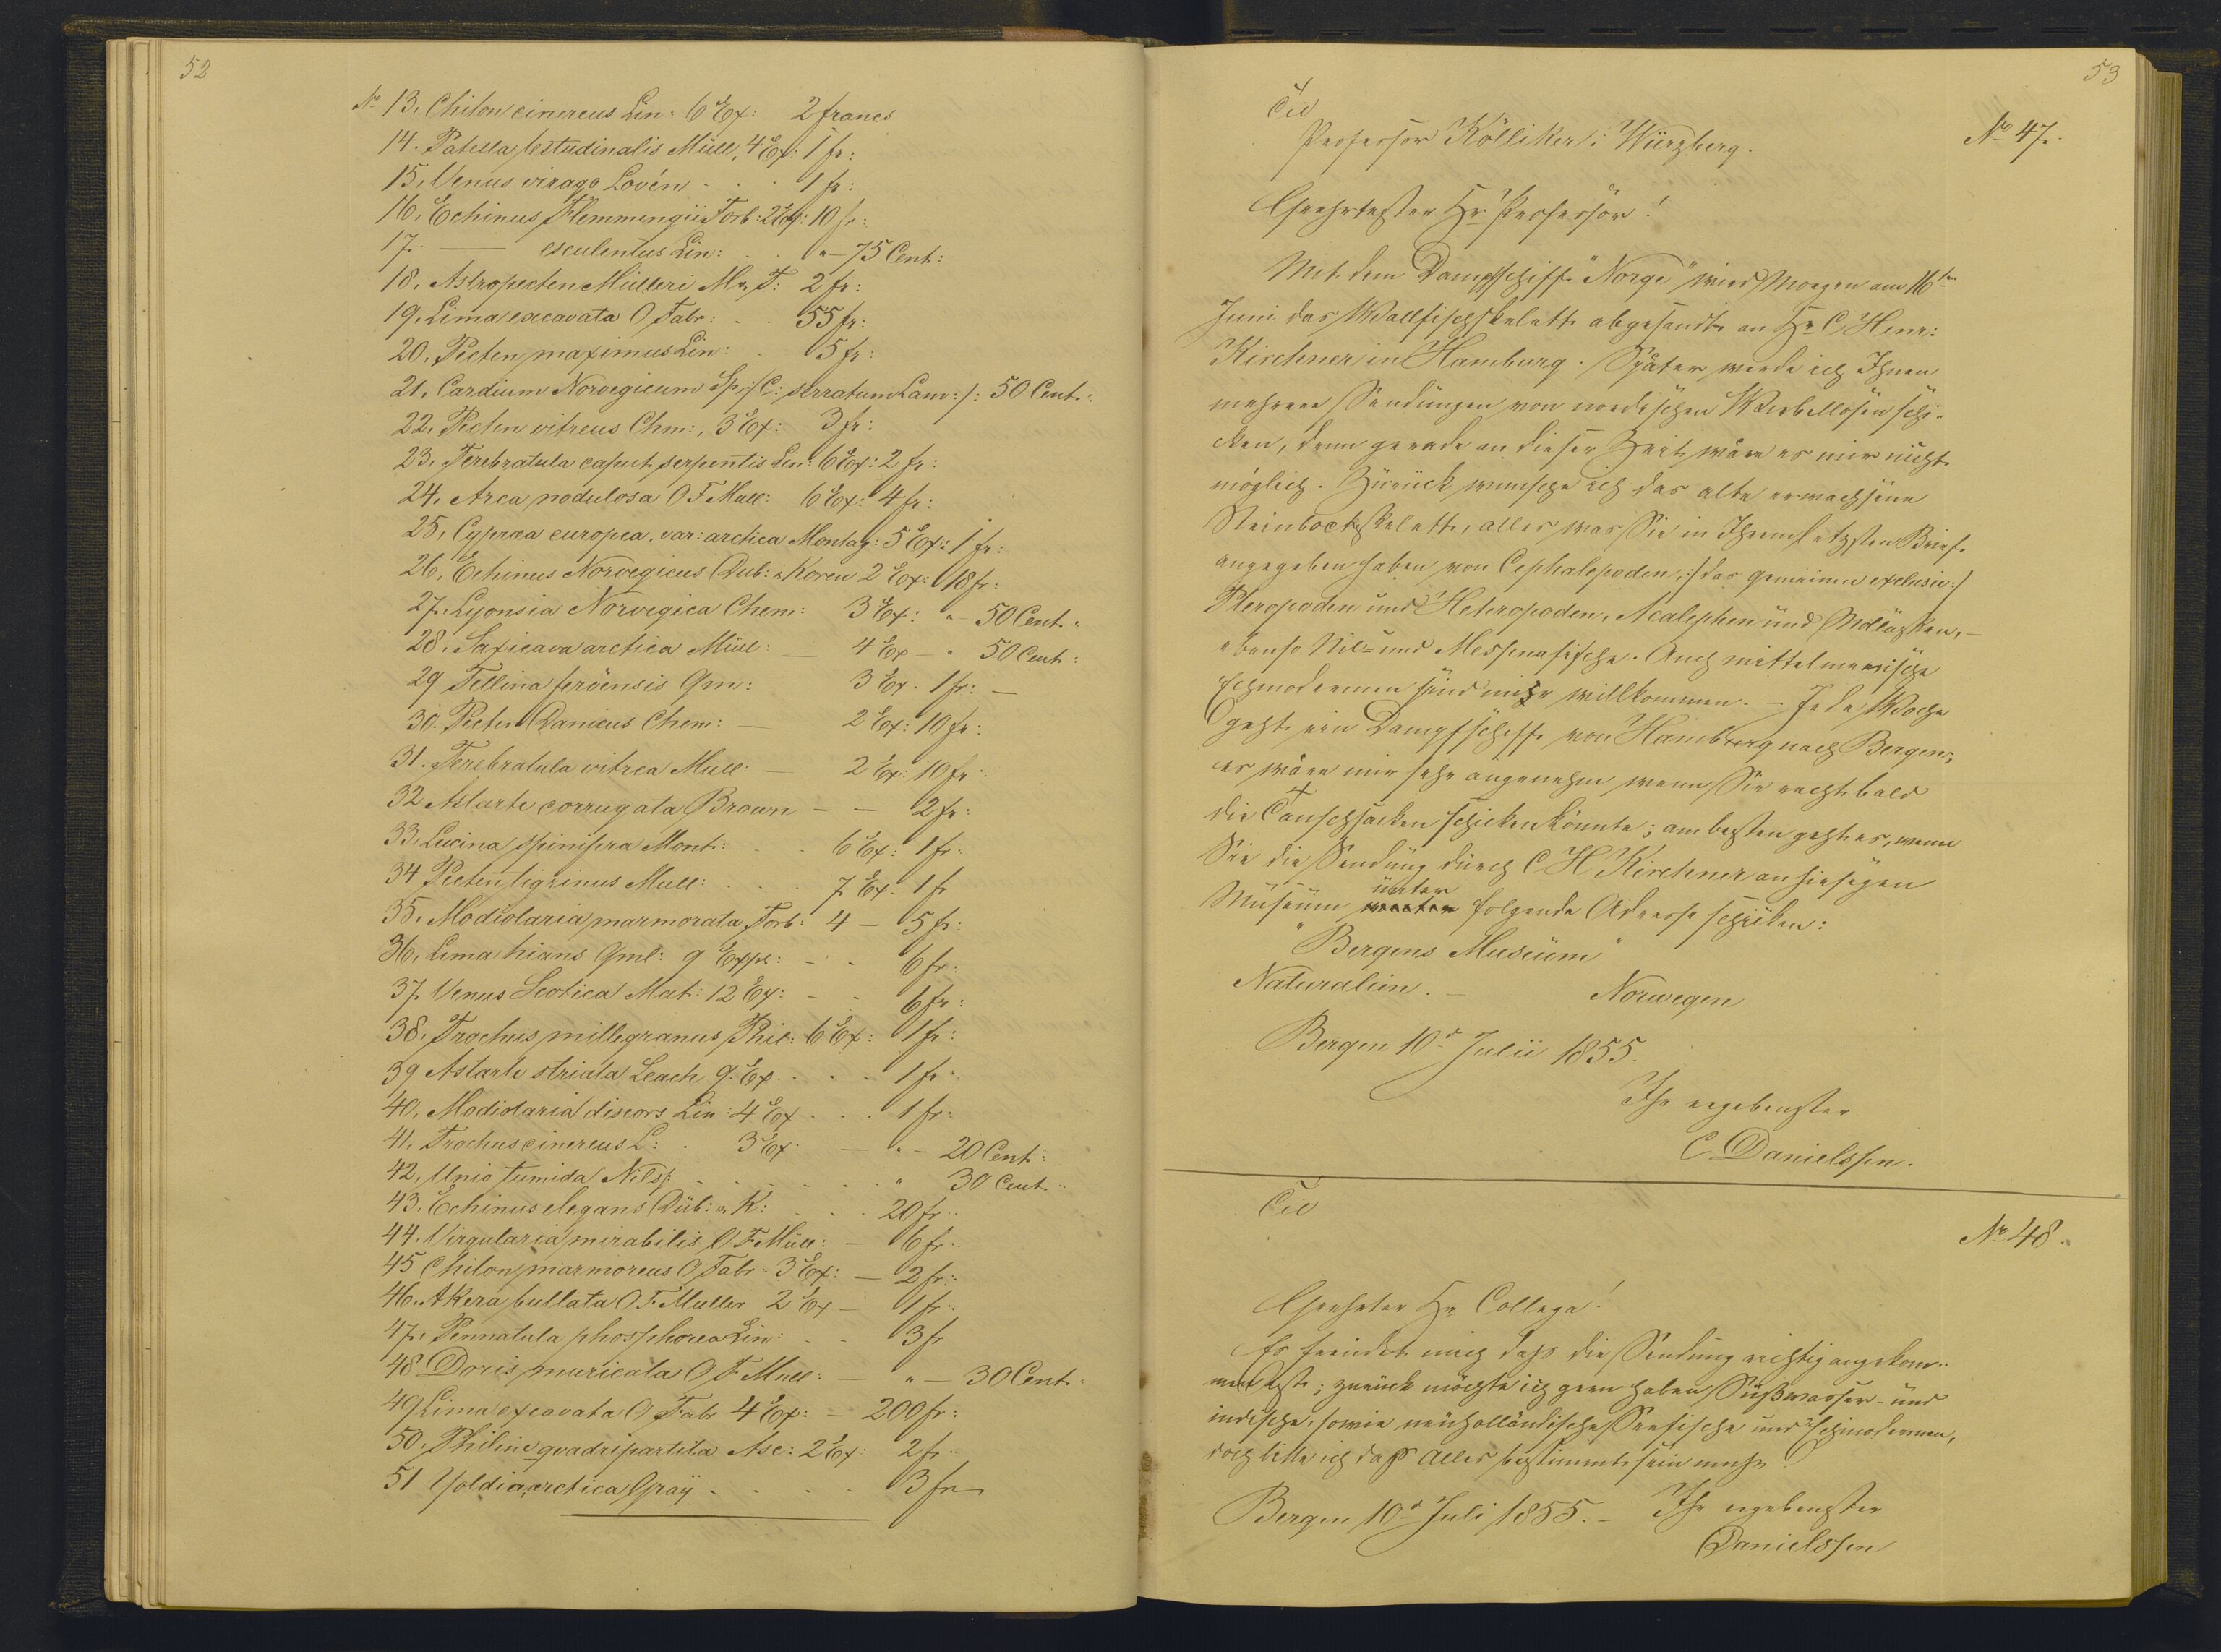 52
No 13. Chiton cinereus Lin: 6 Ex: 2 francs
14. Patella testudinalis Müll, 4 Ex: 1 fr:
15. Venus virago Lovén . . . 1 fr:
16. Echinus Flemmingii Forb: 2 Ex: 10 fr:
17. — esculentus Lin: . . „ — 75 Cent:
18. Astropecten Mülleri M & T: 2 fr:
19. Lima excavata O Fabr: . . 55 fr:
20. Pecten maximus Lin: . 5 fr:
21. Cardium Norvegicum Sp: /: C: serratum Lam: /: 50 Cent:
22. Pecten vitreus Chm:, 3 Ex: 3 fr:
23. Terebratula caput serpentis Lin: 6 Ex: 2 fr:
24. Arca nodulosa O F Mull: 6 Ex: 4 fr:
25. Cypræa europea. var: arctica Montag: 5 Ex: 1 fr:
26. Echinus Norvegicus Dub: & Koren 2 Ex: 18 fr:
27. Lyonsia Norvegica Chem: 3 Ex: „ — 50 Cent:
28. Saxicava arctica Müll: — 4 Ex — „ 50 Cent:
29 Tellina feröensis Gm: 3 Ex. 1 fr: —
30. Pecten Danicus Chem: — 2 Ex: 10 fr:
31. Terebratula vitrea Mull: — 2 Ex: 10 fr:
32 Astarte corrugata Brown — — 2 fr:
33. Lucina spinifera Mont: . . 6 Ex: 1 fr:
34 Pecten tigrinus Mull: . . . 7 Ex: 1 fr
35. Modiolaria marmorata Forb: 4 — 5 fr:
36. Lima hians Gml: 9 Expl: — . 6 fr:
37. Venus Scotica Mat: 12 Ex: — . 6 fr:
38. Trochus millegranus Phil: 6 Ex: 1 fr:
39 Astarte striata Leach 9. Ex. . . . 1 fr:
40. Modiolaria discors Lin: 4 Ex . . . 1 fr:
41. Trochus cinereus L: . 3 Ex: — „ — 20 Cent:
42. Unio tumida Nilss: . . . . . . „ 30 Cent:
43. Echinus elegans Düb: & K: . . . 20 fr:
44. Virgularia mirabilis O F Müll: — 6 fr:
45 Chiton marmoreus O Fabr. 3 Ex: — 2 fr:
46. Akera bullata O F Muller 2 Ex — 1 fr:
47. Pennatula phosphorea Lin: . . 3 fr
48 Doris muricata O F Mull: — „ — 30 Cent:
49 Lima excavata O Fabr 4 Ex: — 200 fr:
50. Philine quadripartita Asc: 2 Ex: 2 fr:
51 Yoldia arctica Graÿ . . . . 3 fr
53
Til
No 47.
Professor Kölliker i Würzberg.
Geehrtester Hr Professor!
Mit dem Dampfschiff "Norge" wird Morgen am 16ten
Juni das Wallfischskelett abgesandt an Hr C Henr:
Kirchner in Hamburg. Später werde ich Ihnen
mehrere Sendungen von nordischen Wirbellosen schi-
cken, denn gerade an dieser Zeit wäre es mir nicht
möglich. Zurück wünsche ich das alte erwachsene
Steinbockskelett, alles was Sie in Ihrem letzten Brief
angegeben haben von Cephalopoden, /: das gemeine exclusiv :/
Pteropoden und Heteropoden, Acalephen und Mollusken, —
ebenso Nil= und Messinafische. Auch mittelmeerische
Echinodermen sind mihr willkommen. — Jede Woche
geht ein Dampfschiff von Hamburg nach Bergen;
es wäre mir sehr angenehm wenn Sie recht bald
die Tauschsachen schicken könnte; am besten geht es, wenn
Sie die Sendung durch C H Kirchner an hiesigen
Museum unter folgende Adresse schicken:
"Bergens Museum"
Naturalien. — Norwegen
Bergen 10d Julii 1855.
Ihr ergebenster
C Danielssen.
Til
No 48.
Geehrter Hr Collega!
Es freudet mich dass die Sendung richtig angekom-
men ist; zurück möchte ich gern haben Süßwasser- und
indische, sowie neuholländische Seefische und Echinodermen,
doch bitte ich daß Alles bestimmt sein muss.
Bergen 10d Juli 1855. — Ihr ergebenster
Danielssen